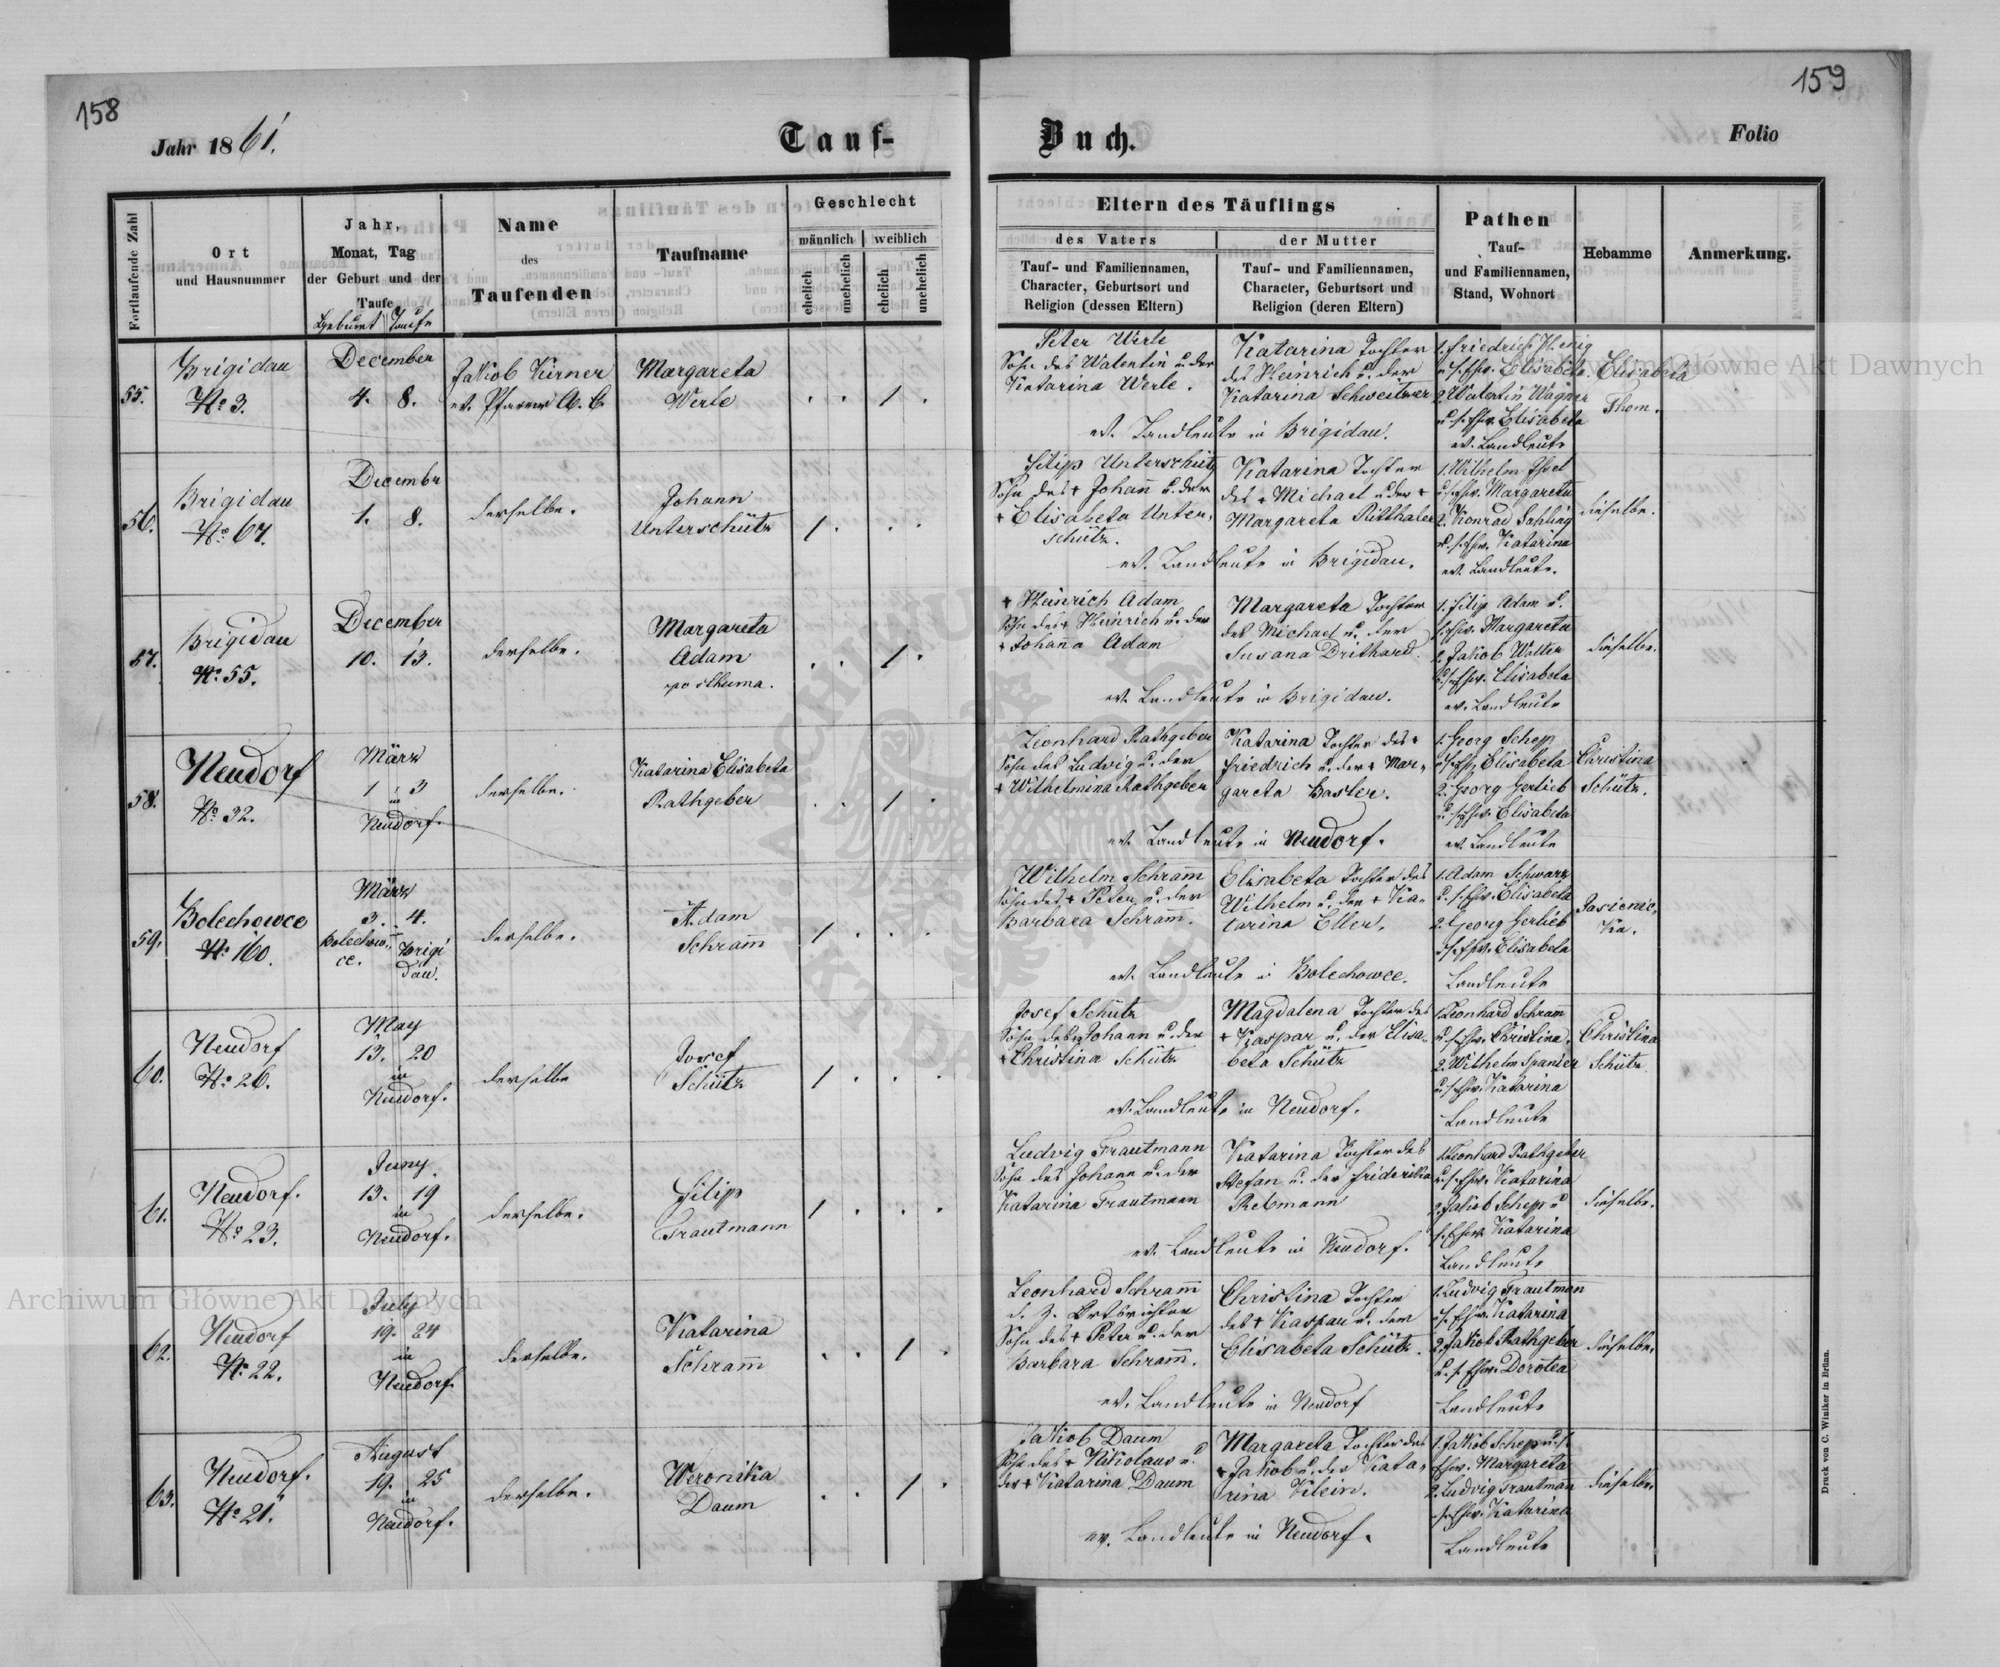 158
159
Jahr 1861.
Tauf-
Buch.
Folio
Fortlaufende Zahl
Ort
und Hausnummer
Jahr,
Monat, Tag
der Geburt und der
Taufe
Geburt Taufe
Name
des
Taufenden
Taufname
Geschlecht
männlich
weiblich
ehelich
unehelich
ehelich
unehelich
Eltern des Täuflings
des Vaters
Tauf- und Familiennamen,
Character, Geburtsort und
Religion (dessen Eltern)
der Mutter
Tauf- und Familiennamen,
Character, Geburtsort und
Religion (deren Eltern)
Pathen
Tauf-
und Familiennamen,
Stand, Wohnort
Hebamme
Anmerkung.
55.
Brigidau
No 3.
December
4. 8.
Jakob Kürner
ev. Pfarrer A. C.
Margareta
Werle
. . 1 .
Peter Werle
Sohn des Walentin u. der
Katarina Werle.
Katarina Tochter
des Heinrich u. der
Katarina Schweitzer
ev. Landleute in Brigidau.
1. Friedrich Henig
u. s. Ehw. Elisabeta.
2. Walentin Wagner
u. s. Ehw. Elisabeta
ev. Landleute
Elisabeta
Thom.
56.
Brigidau
No 67.
Decembr
1. 8.
derselbe.
Johann
Unterschütz
1 . . .
Filip Unterschütz
Sohn des + Johann u. der
+ Elisabeta Unter,
schütz.
Katarina Tochter
des + Michael u. der +
Margareta Ritthaler
ev. Landleute in Brigidau.
1. Wilhelm
u. s. Ehw. Margareta
2. Konrad Sahling
u. s. Ehw. Katarina
ev. Landleute.
dieselbe.
57.
Brigidau
No 55.
December
10. 13.
derselbe.
Margareta
Adam
posthuma.
. . 1 .
+ Heinrich Adam
Sohn des + Heinrich u. der
+ Johanna Adam
Margareta Tochter
des Michael u. der
Susana Drithard
ev. Landleute in Brigidau.
1. Filip Adam u.
s. Ehw. Margareta
2. Jakob Walter
u. s. Ehw. Elisabeta
ev. Landleute
dieselbe.
58.
Neudorf
No 32.
März
1 3
in
Neudorf.
derselbe.
Katarina Elisabeta
Rathgeber
. . 1 .
Leonhard Rathgeber
Sohn des Ludwig u. der
+ Wilhelmina Rathgeber
Katarina Tochter des +
Friedrich u. der + Mar-
gareta Basler.
ev. Landleute in Neudorf.
1. Georg Schepp
u. s. Ehw. Elisabeta
2. Georg Gerlieb
u. s. Ehw. Elisabeta
ev. Landleute
Christina
Schütz.
59.
Bolechowce
No 160.
März
3. 4.
Bolechow-
ce.
Brigi
dau.
derselbe.
Adam
Schram̄
1 . . .
Wilhelm Schram̄
Sohn des + Peter u. der
Barbara Schram̄.
Elisabeta Tochter des
Wilhelm u. der + Ka-
tarina Eller.
ev. Landleute in Bolechowce.
1. Adam Schwarz
u. s. Ehw. Elisabeta
2. Georg Gerlieb
u. s. Ehw. Elisabeta
Landleute
Jasienic-
ka.
60.
Neudorf
No 26.
May
13. 20
in
Neudorf.
derselbe
Josef
Schütz
1 . . .
Josef Schütz
Sohn des Johann u. der
+ Christina Schütz
Magdalena Tochter des
+ Kaspar u. der Elisa-
beta Schütz
ev. Landleute in Neudorf.
1. Leonhard Schram̄
u. s. Ehw. Christina.
2. Wilhelm Spanier
u. s. Ehw. Katarina
Landleute
Christina
Schütz.
61.
Neudorf.
No 23.
Juny
13. 19
in
Neudorf.
derselbe.
Filip
Trautmann
1 . . .
Ludvig Trautmann
Sohn des Johann u. der
Katarina Trautmann
Katarina Tochter des
Stefan u. der Friderika
Rebmann
ev. Landleute in Neudorf.
1. Leonhard Rathgeber
u. s. Ehw. Katarina
2. Jakob Schepp u
s. Ehw. Katarina
Landleute
dieselbe.
62.
Neudorf
No 22.
July
19. 24
in
Neudorf.
derselbe.
Katarina
Schram̄
. . 1 .
Leonhard Schram̄
d. Z. Ortsrichter
Sohn des + Peter u. der
Barbara Schram̄.
Christina Tochter
des + Kaspar u. der
Elisabeta Schütz.
ev. Landleute in Neudorf
1. Ludvig Trautman
u. s. Ehw. Katarina
2. Jakob Rathgeber
u. s. Ehw. Dorotea
Landleute
dieselbe.
63.
Neudorf.
No 21.
August
19. 25
in
Neudorf.
derselbe.
Weronika
Daum
. . 1 .
Jakob Daum
Sohn des + Nikolaus u.
der + Katarina Daum
Margareta Tochter des
+ Jakob u. der Kata-
rina Klein.
ev. Landleute in Neudorf.
1. Jakob Schepp u. s.
Ehw. Margareta
2. Ludvig Trautman̄
u. s. Ehw. Katarina
Landleute
dieselbe.
Druck von C. Winiker in Brünn.
Archiwum Główne Akt Dawnych
Archiwum Główne Akt Dawnych